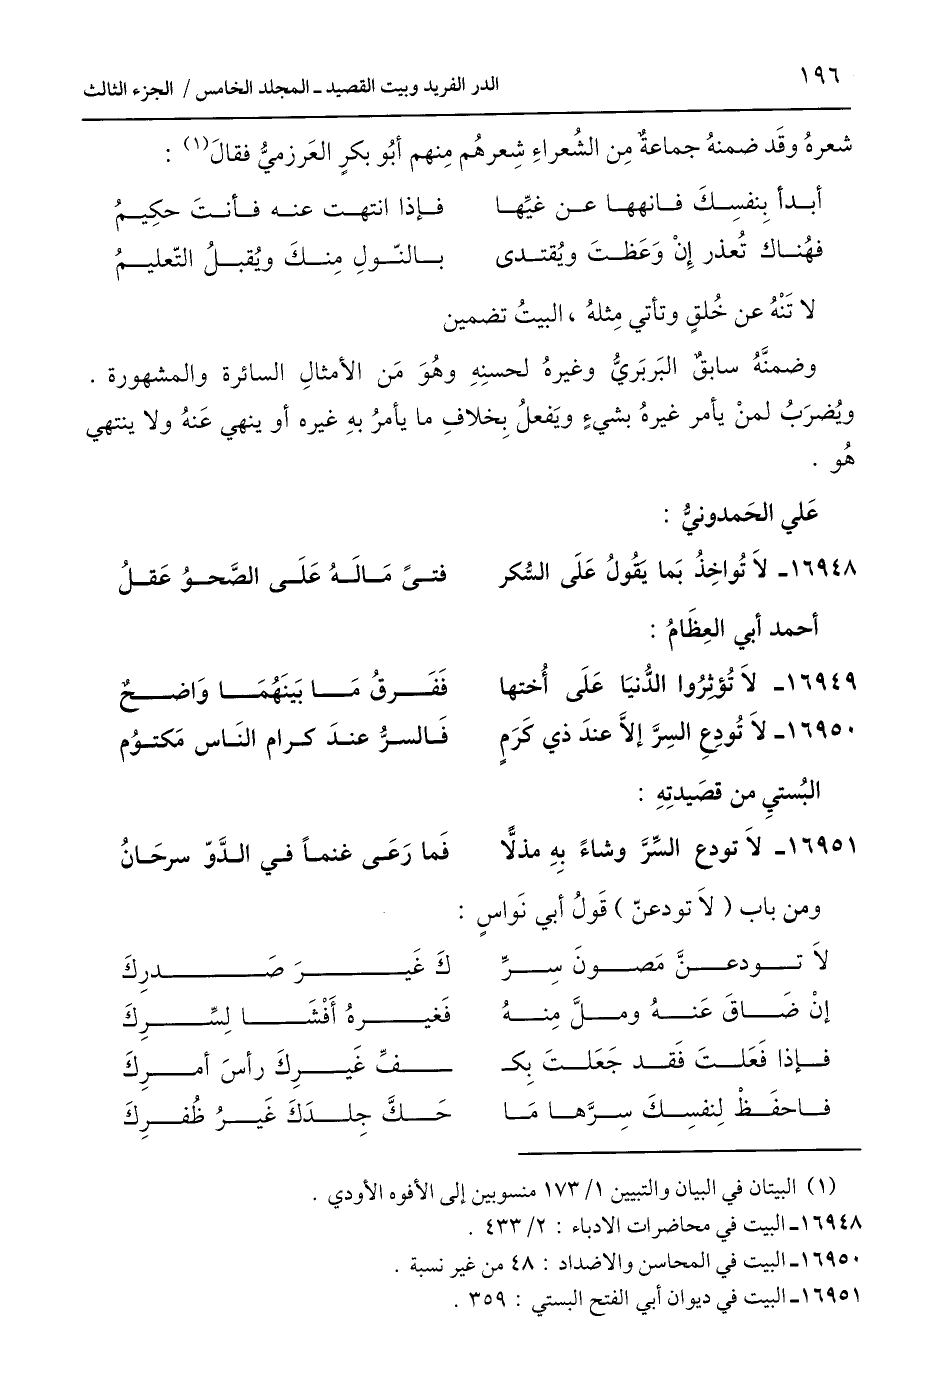 ١٩٦
الدر الفريد وبيت القصيد ـ المجلد الخامس / الجزء الثالث
شعرهُ وقَد ضمنهُ جماعةٌ مِن الشُعراءِ شِعرهُم مِنهم أبُو بكرٍ العَرزميُّ فقالَ(١) :
أبدأ بِنفسِكَ فانهها عن غيِّها فإذا انتهت عنه فأنتَ حكِيمُ
فهُناكَ تُعذر إنْ وَعَظتَ ويُقتدى بالنّولِ مِنكَ ويُقبلُ التّعليمُ
لا تَنْهُ عن خُلقٍ وتأتي مِثلهُ ، البيتُ تضمين
وضمنَّهُ سابقٌ البَربَريُّ وغيرهُ لحسنِهِ وهُوَ مَن الأمثالِ السائرة والمشهورة .
ويُضرَبُ لمنْ يأمر غيرهُ بشيءٍ ويَفعلُ بِخلافِ ما يأمرُ بهِ غيره أو ينهي عَنهُ ولا ينتهي
هُو .
عَلي الحَمدونيُّ :
١٦٩٤٨ـ لاَ تُواخِذُ بَما يَقُولُ عَلَى السُكر فتىً مَالَهُ عَلَى الصَّحوُ عَقلُ
أحمد أبي العِظَامُ :
١٦٩٤٩ـ لاَ تُؤثِرُوا الدُّنيَا عَلَى أُختها فَفَرقُ مَا بَينَهُمَا وَاضحٌ
١٦٩٥٠ـ لاَ تُودِعِ السِرَّ إلاَّ عندَ ذي كَرَمٍ فَالسرُّ عندَ كرام النَاس مَكتوُم
البُستيِ من قصَيدتِهِ :
١٦٩٥١ـ لاَ تودع السِّرَّ وشاءً بِهِ مذلًّا فَما رَعَى غنماً في الدَّوّ سرحَانُ
ومن باب ( لاَ تودعنّ ) قَولُ أبي نَواسٍ :
لاَ تودعنَّ مَصونَ سِرِّ كَ غَيرَ صَدرِكَ
إنْ ضَاقَ عَنهُ وملَّ مِنهُ فَغيرهُ أَفْشَا لسِّرِكَ
فإذا فَعَلتَ فَقد جَعَلتَ بِكـ ـفِّ غَيرِكَ رأسَ أمرِكَ
فاحفَظْ لِنفسِكَ سِرَّها مَا حَكَّ جِلدَكَ غَيرُ ظُفرِكَ
(١) البيتان في البيان والتبيين ١ / ١٧٣ منسوبين إلى الأفوه الأودي .
١٦٩٤٨ـ البيت في محاضرات الادباء : ٢ / ٤٣٣ .
١٦٩٥٠ـ البيت في المحاسن والاضداد : ٤٨ من غير نسبة .
١٦٩٥١ـ البيت في ديوان أبي الفتح البستي : ٣٥٩ .